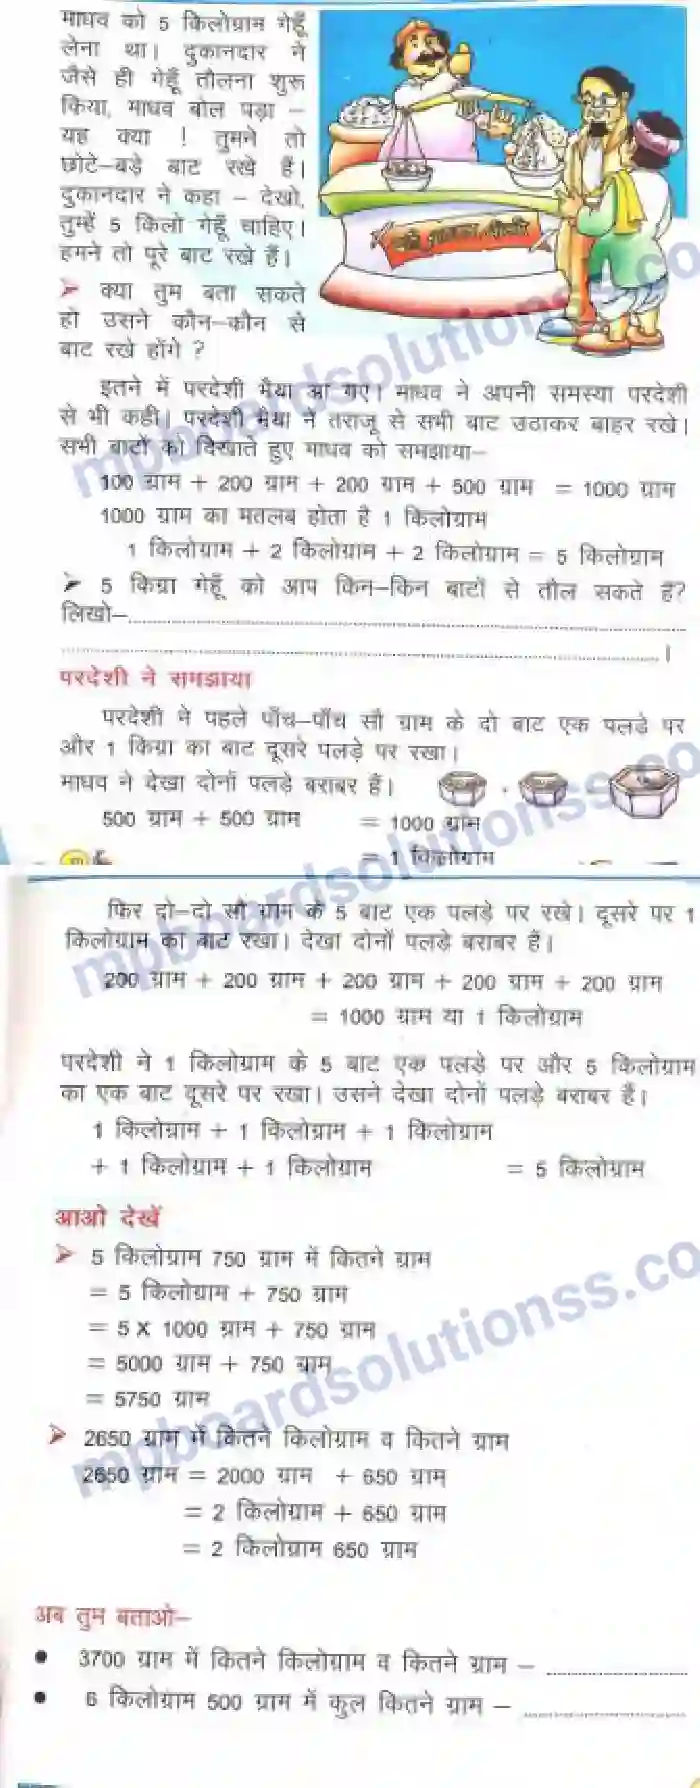 माधव को 5 किलोग्राम गेहूँ
लेना था। दुकानदार ने
जैसे ही गेहूँ तौलना शुरू
किया, माधव बोल पड़ा –
यह क्या ! तुमने तो
छोटे–बड़े बाट रखे हैं।
दुकानदार ने कहा – देखो,
तुम्हें 5 किलो गेहूँ चाहिए।
हमने तो पूरे बाट रखे हैं।
➤ क्या तुम बता सकते
हो उसने कौन–कौन से
बाट रखे होंगे ?
इतने में परदेशी भैया आ गए। माधव ने अपनी समस्या परदेशी
से भी कही। परदेशी भैया ने तराजू से सभी बाट उठाकर बाहर रखे।
सभी बाटों को दिखाते हुए माधव को समझाया–
100 ग्राम + 200 ग्राम + 200 ग्राम + 500 ग्राम = 1000 ग्राम
1000 ग्राम का मतलब होता है 1 किलोग्राम
1 किलोग्राम + 2 किलोग्राम + 2 किलोग्राम = 5 किलोग्राम
➤ 5 किग्रा गेहूँ को आप किन–किन बाटों से तौल सकते हैं?
लिखो–
परदेशी ने समझाया
परदेशी ने पहले पाँच–पाँच सौ ग्राम के दो बाट एक पलड़े पर
और 1 किग्रा का बाट दूसरे पलड़े पर रखा।
माधव ने देखा दोनों पलड़े बराबर हैं।
500 ग्राम + 500 ग्राम = 1000 ग्राम
= 1 किलोग्राम
फिर दो–दो सौ ग्राम के 5 बाट एक पलड़े पर रखे। दूसरे पर 1
किलोग्राम का बाट रखा। देखा दोनों पलड़े बराबर हैं।
200 ग्राम + 200 ग्राम + 200 ग्राम + 200 ग्राम + 200 ग्राम
= 1000 ग्राम या 1 किलोग्राम
परदेशी ने 1 किलोग्राम के 5 बाट एक पलड़े पर और 5 किलोग्राम
का एक बाट दूसरे पर रखा। उसने देखा दोनों पलड़े बराबर हैं।
1 किलोग्राम + 1 किलोग्राम + 1 किलोग्राम
+ 1 किलोग्राम + 1 किलोग्राम = 5 किलोग्राम
आओ देखें
➤ 5 किलोग्राम 750 ग्राम में कितने ग्राम
= 5 किलोग्राम + 750 ग्राम
= 5 X 1000 ग्राम + 750 ग्राम
= 5000 ग्राम + 750 ग्राम
= 5750 ग्राम
➤ 2650 ग्राम में कितने किलोग्राम व कितने ग्राम
2650 ग्राम = 2000 ग्राम + 650 ग्राम
= 2 किलोग्राम + 650 ग्राम
= 2 किलोग्राम 650 ग्राम
अब तुम बताओ–
• 3700 ग्राम में कितने किलोग्राम व कितने ग्राम –
• 6 किलोग्राम 500 ग्राम में कुल कितने ग्राम –
mpboardsolutionss.co
mpboardsolutionss.co
mpboardsolutionss.co